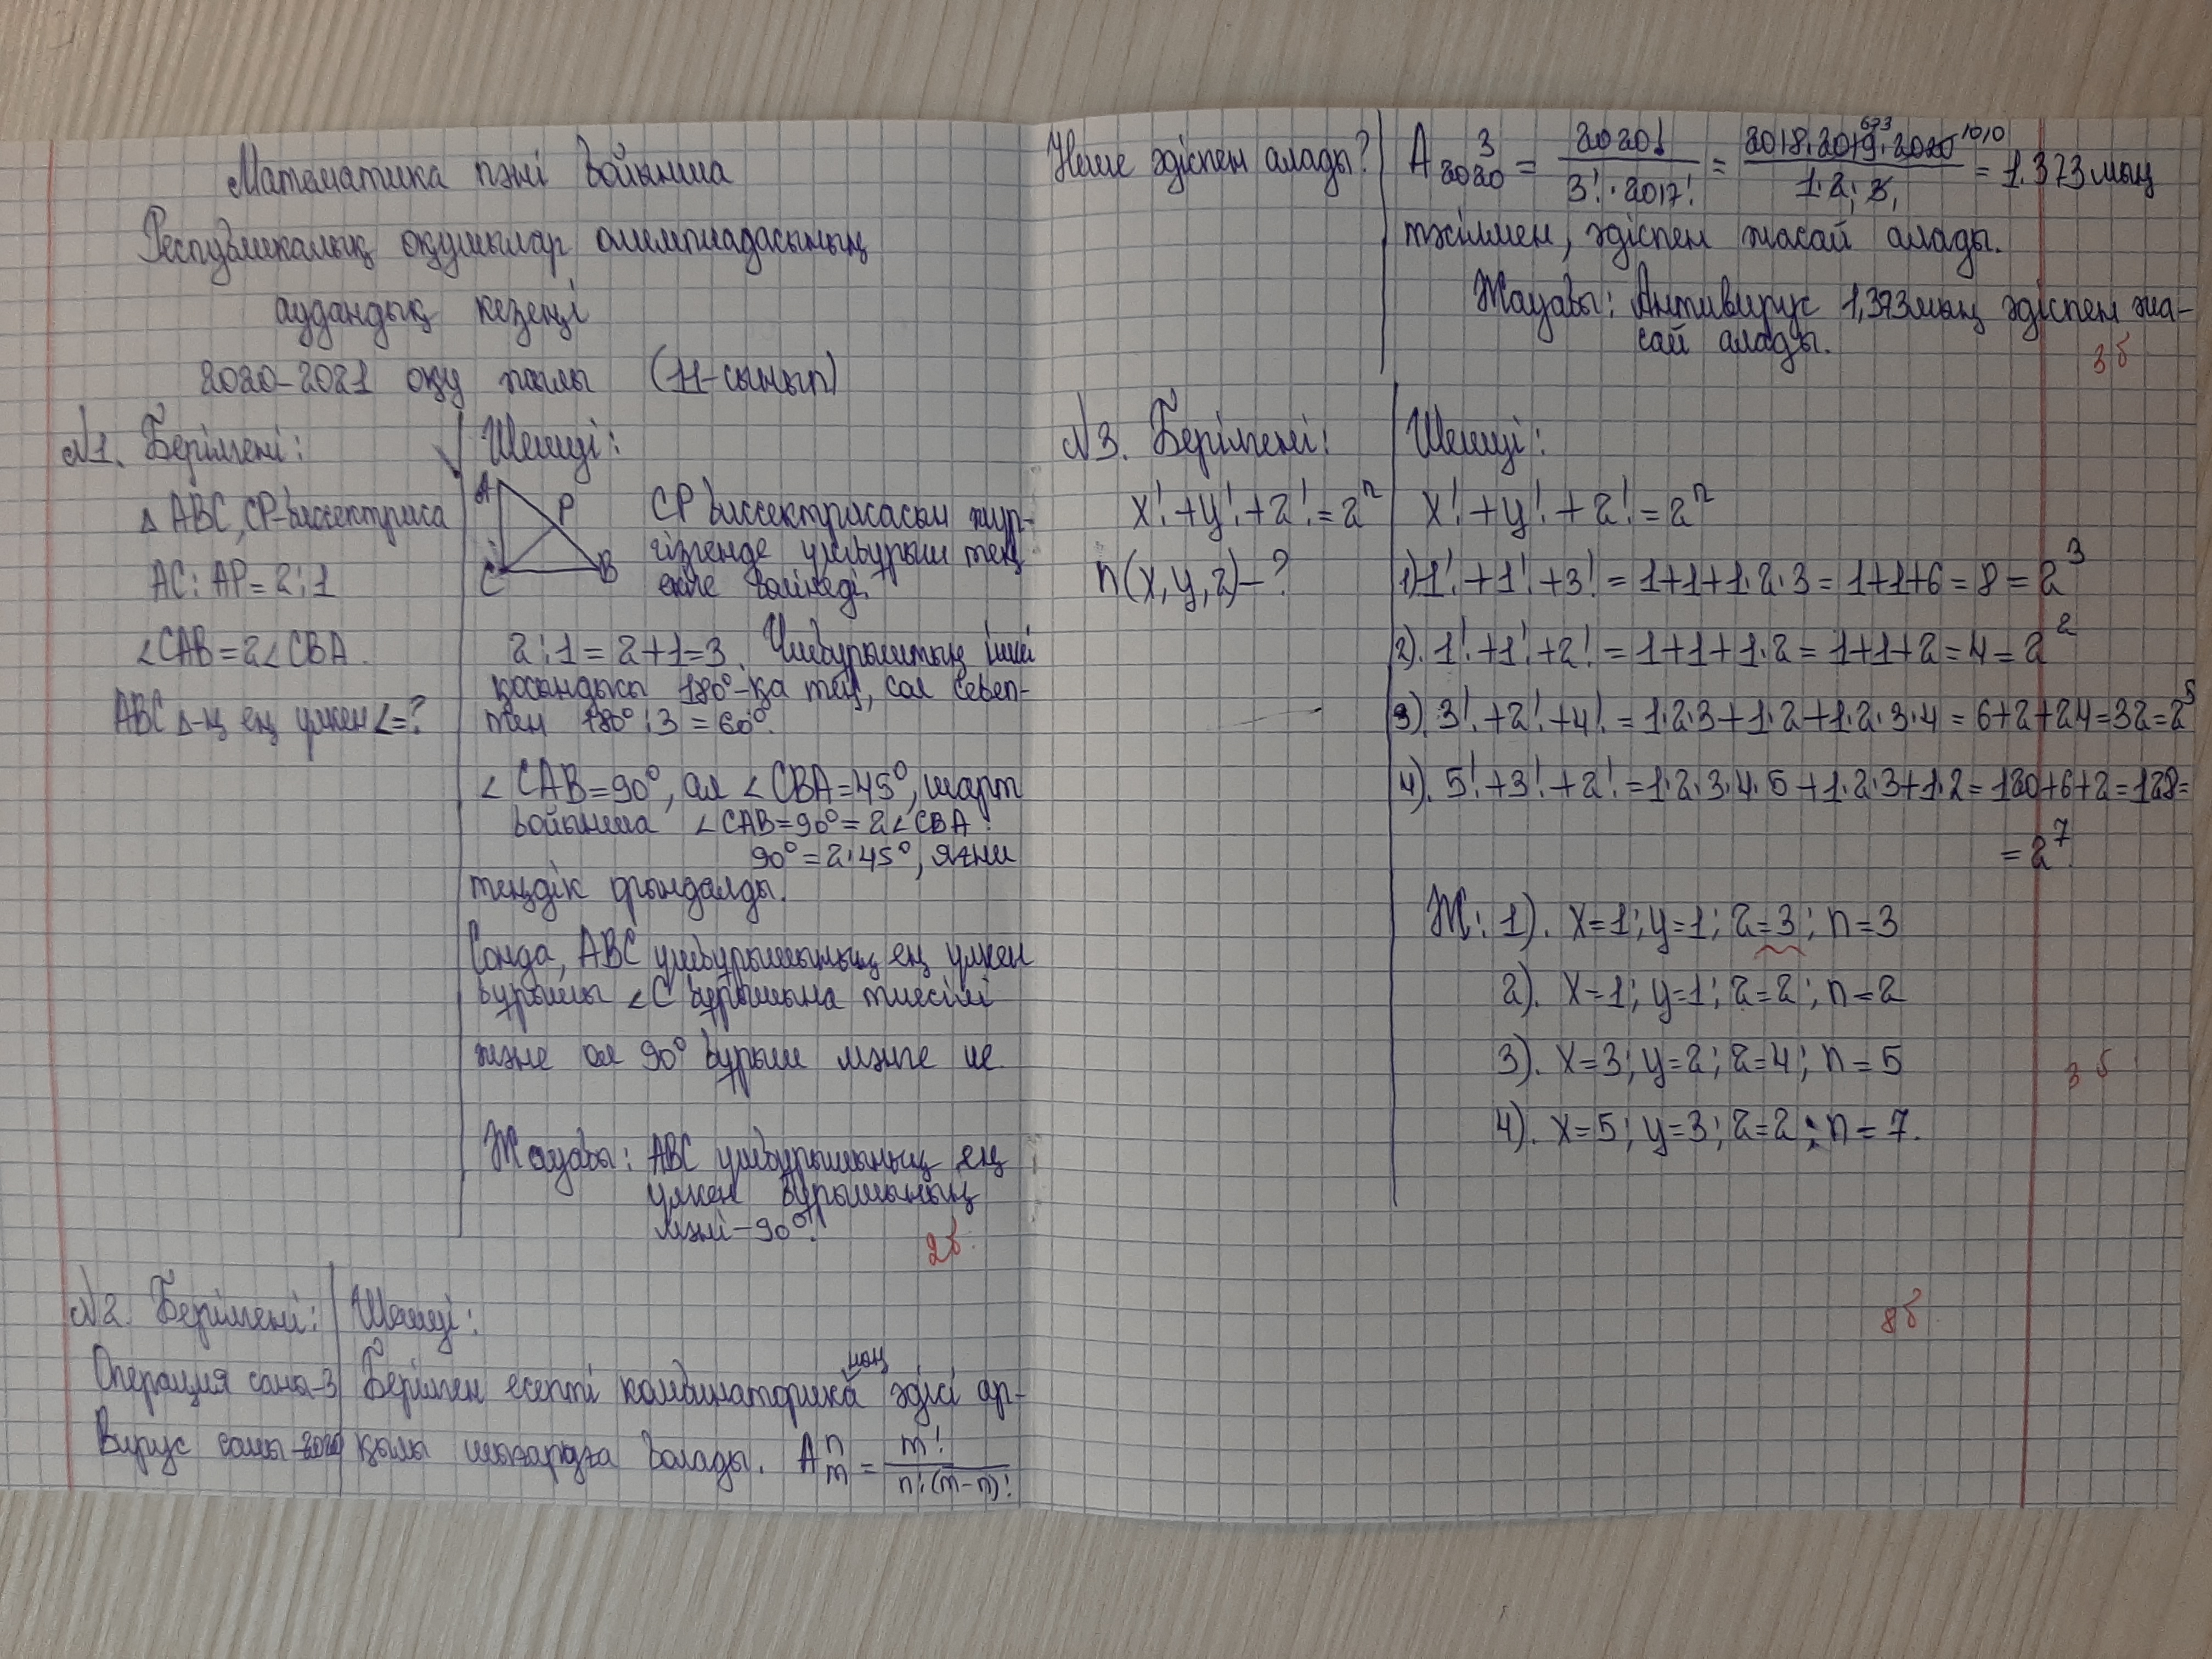 Математика пәні бойынша
Республикалық оқушылар олимпиадасының
аудандық кезеңі
2020-2021 оқу жылы (11-сынып)
№1. Берілгені:
Δ ABC, CP-биссектриса
AC:AP=2:1
∠CAB=2∠CBA.
ABC Δ-ң ең үлкен ∠=?
Шешуі:
A
P
C
B
CP биссектрисасын жүр-
гізгенде үшбұрыш тең
екіге бөлінеді.
2:1=2+1=3. Үшбұрыштың ішкі
қосындысы 180°-қа тең, сол себеп-
тен 180°:3=60°.
∠CAB=90°, ал ∠CBA=45°, шарт
бойынша ∠CAB=90°=2∠CBA
90°=2·45°, яғни
теңдік орындалды.
Сонда, ABC үшбұрышының ең үлкен
бұрышы ∠C бұрышына тиесілі
және ол 90° бұрыш мәнге ие.
Жауабы: ABC үшбұрышының ең
үлкен бұрышының
мәні-90°.
2б.
№2. Берілгені:
Операция саны-3
Вирус саны-2020
Шешуі:
ның
Берілген есепті комбинаторика әдісі ар-
қылы шығаруға болады. A_m^n = m!/n!(m-n)!
Неше әдіспен алады?
A_2020^3 = 2020!/3!·2017! = 2018·2019·2020/1·2·3 = 1.373 мың
673 1010
тәсілмен, әдіспен жасай алады.
Жауабы: Антивирус 1,373мың әдіспен жа-
сай алады.
3б
№3. Берілгені:
x!+y!+z!=2^n
n(x,y,z)-?
Шешуі:
x!+y!+z!=2^n
1) 1!+1!+3!=1+1+1·2·3=1+1+6=8=2^3
2). 1!+1!+2!=1+1+1·2=1+1+2=4=2^2
3). 3!+2!+4!=1·2·3+1·2+1·2·3·4=6+2+24=32=2^5
4). 5!+3!+2!=1·2·3·4·5+1·2·3+1·2=120+6+2=128=
=2^7.
Ж: 1). x=1; y=1; z=3; n=3
2). x=1; y=1; z=2; n=2
3). x=3; y=2; z=4; n=5
4). x=5; y=3; z=2; n=7.
3б
8б